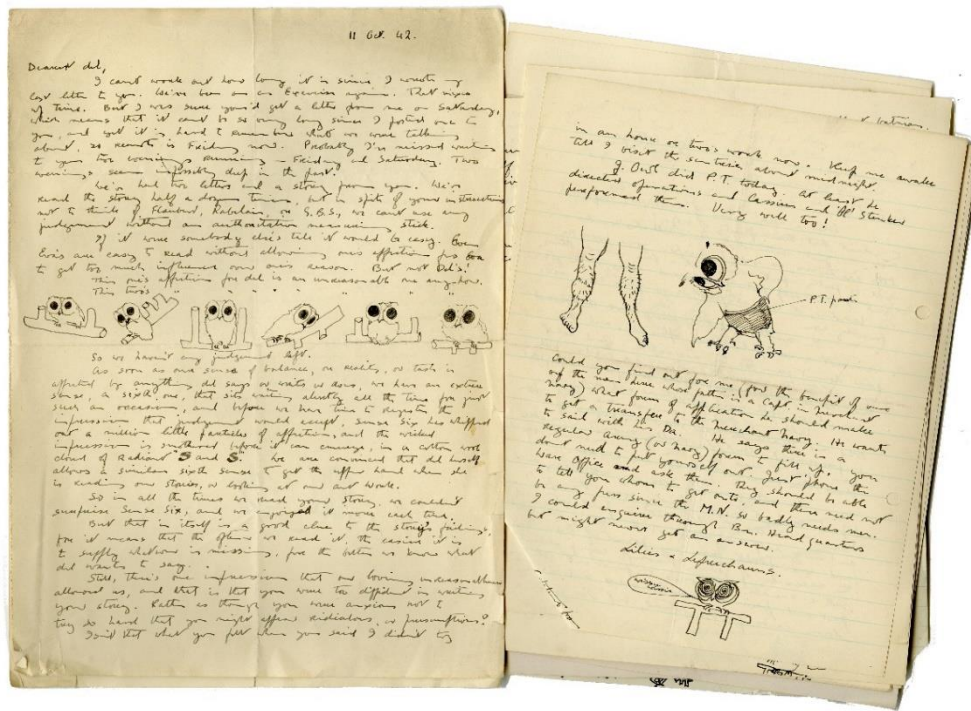 11 Oct. 42.
Dearest del,
I can't work out how long it is since I wrote my
last letter to you. We've been on an Exercise again. That
of Time. But I was sure you'd get a letter from me on Saturday,
which means that it can't be so very long since I posted one to
you, and yet it is hard to remember what we were talking
about, so remote is Friday now. Probably I've missed writing
to you two evenings running – Friday and Saturday. Two
evenings seem impossibly deep in the past.
We've had two letters and a story from you. We've
read the story half a dozen times, but in spite of your instructions
not to think of Flaubert, Rabelais, or G.B.S., we can't use any
judgement without an measuring stick.
If it were somebody else's tale it would be easy. Even
are easy to read without allowing one's affection for
to get too much influence over one's reason. But not Del's!
This one's affection for del is an unreasonable one anyhow.
This two's " " " " " "
So we haven't any judgement left.
As soon as our sense of balance, or reality, or taste is
affected by anything del says or writes or does, we have an extra
sense, a sixth one, that sits waiting all the time for just
such an occasion, and before we have time to digest the
impression that judgement would accept, Sense Six has whipped
out a million little particles of affection, and the
impression is smothered before it can emerge, in a cotton wool
cloud of Radiant S and S. We are convinced that del herself
allows a similar sixth sense to get the upper hand when she
is reading our stories, or looking at our art work.
So in all the times we read your story, we couldn't
surprise Sense Six, and we enjoyed it more each time.
But that in itself is a good clue to the story's failings,
for it means that the oftener we read it, the easier it is
to supply whatever is missing, for the better we know what
del wants to say.
Still, there's one impression that our loving unreasonableness
allowed us, and that is that you were too diffident in writing
your story. Rather as though you were anxious not to
try so hard that you might appear ridiculous, or presumptuous?
Isn't that what you felt when you said I didn't try
in an hour or two's work now. Keep me awake
till I visit the sentries about midnight.
g. Owl did P.T. today. At least he
directed operations and Cassius and
performed them. Very well too!
P.T. pants
Could you find out for me (for the benefit of one
of the men here whose father is a Capt. in Merchant
Navy) what form of application he should make
to get a transfer to the Merchant Navy. He wants
to sail with his Da. He says there is a
regular Army (or Navy) form to fill up. You
don't need to put yourself out. Just phone the
War Office and ask them. They should be able
to tell you whom to get onto and there need not
be any fuss since the M.N. so badly needs men.
I could enquire through Bn. Headquarters
but might never get an answer.
Lilies & Leprechauns.